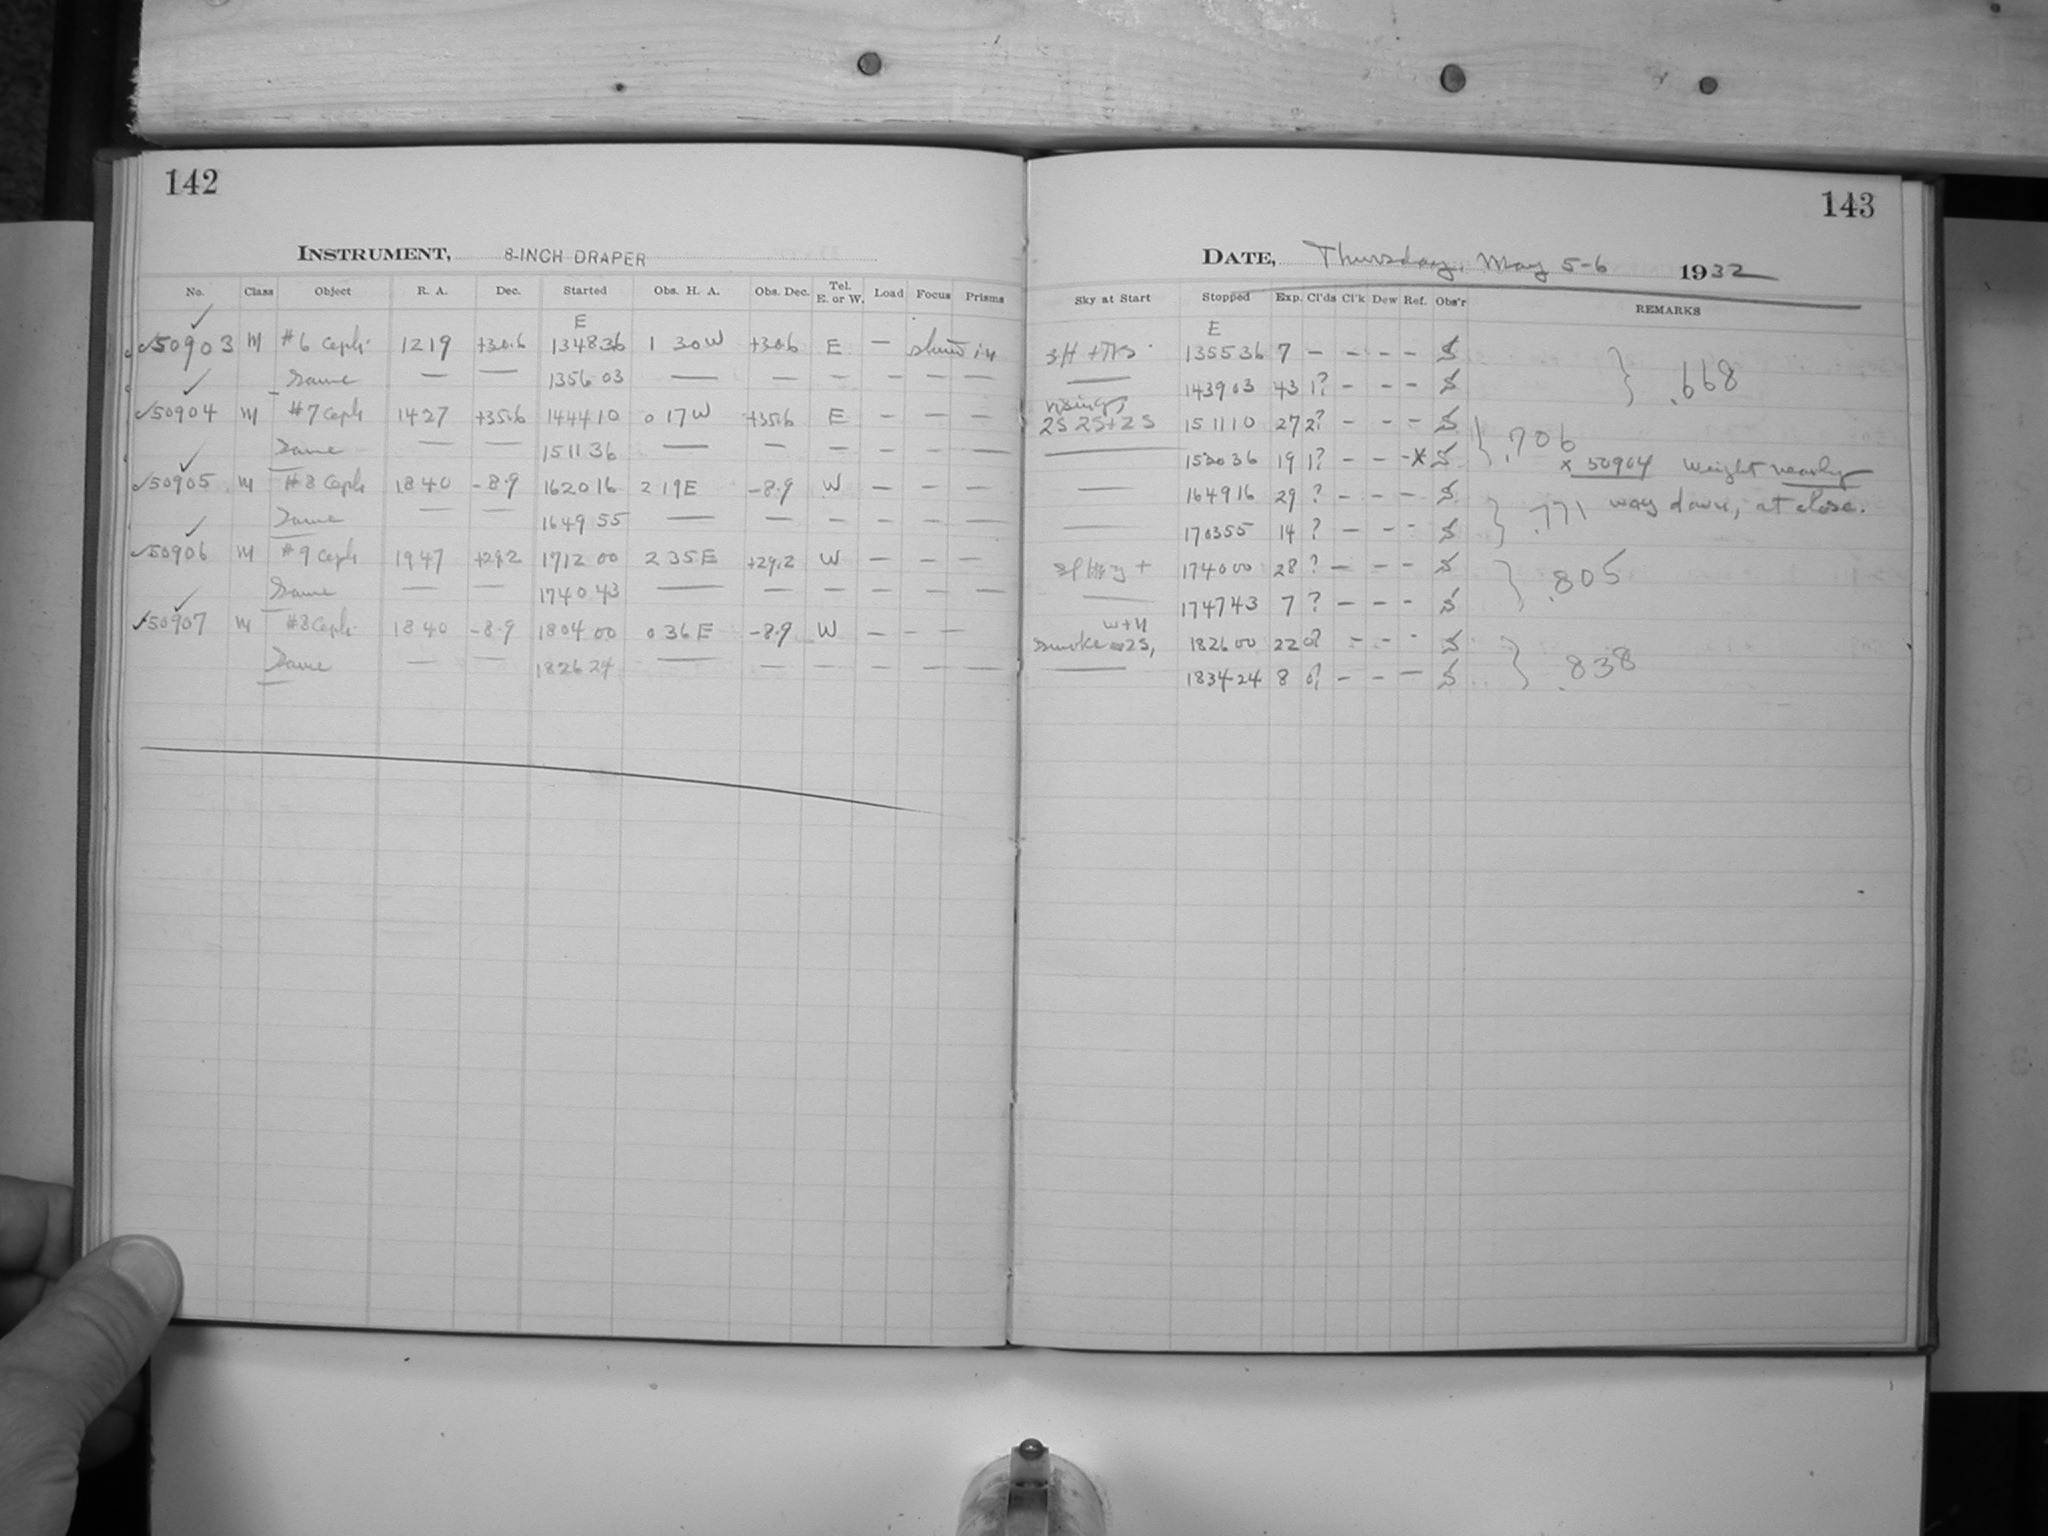 142
INSTRUMENT, 8-INCH DRAPER
No. Class Object R. A. Dec. Started Obs. H. A. Obs. Dec. Tel. E. or W. Load Focus Prisms
E
✓50903 M #6 Ceph. 1219 +30.6 134836 1 30W +30.6 E — in
Same — — 135603 — — — — — —
✓50904 M #7 Ceph 1427 +35.6 144410 0 17W +35.6 E — — —
Same — — 151136 — — — — — —
✓50905 M #8 Ceph 1840 -8.9 162016 2 19E -8.9 W — — —
Same — — 164955 — — — — — —
✓50906 M #9 Ceph 1947 +29.2 171200 2 35E +29.2 W — — —
Same — — 174043 — — — — — —
✓50907 M #8 Ceph. 1840 -8.9 180400 0 36E -8.9 W — — —
Same — — 182624 — — — — — —
143
DATE, Thursday, May 5-6 1932
Sky at Start Stopped Exp. Cl'ds Cl'k Dew Ref. Obs'r REMARKS
E
135536 7 — — — — S
— 143903 43 1? — — — S } .668
rising,
2S 2S+2S 151110 27 2? — — — S
— 153036 19 1? — — -* S } .706
x 50904 weight nearly
— 164916 29 ? — — — S
way down, at close.
— 170355 14 ? — — — S } .771
174000 28 ? — — — S
— 174743 7 ? — — — S } .805
W+N
smoke 2S, 182600 22 0? — — — S
— 183424 8 0? — — — S } .838